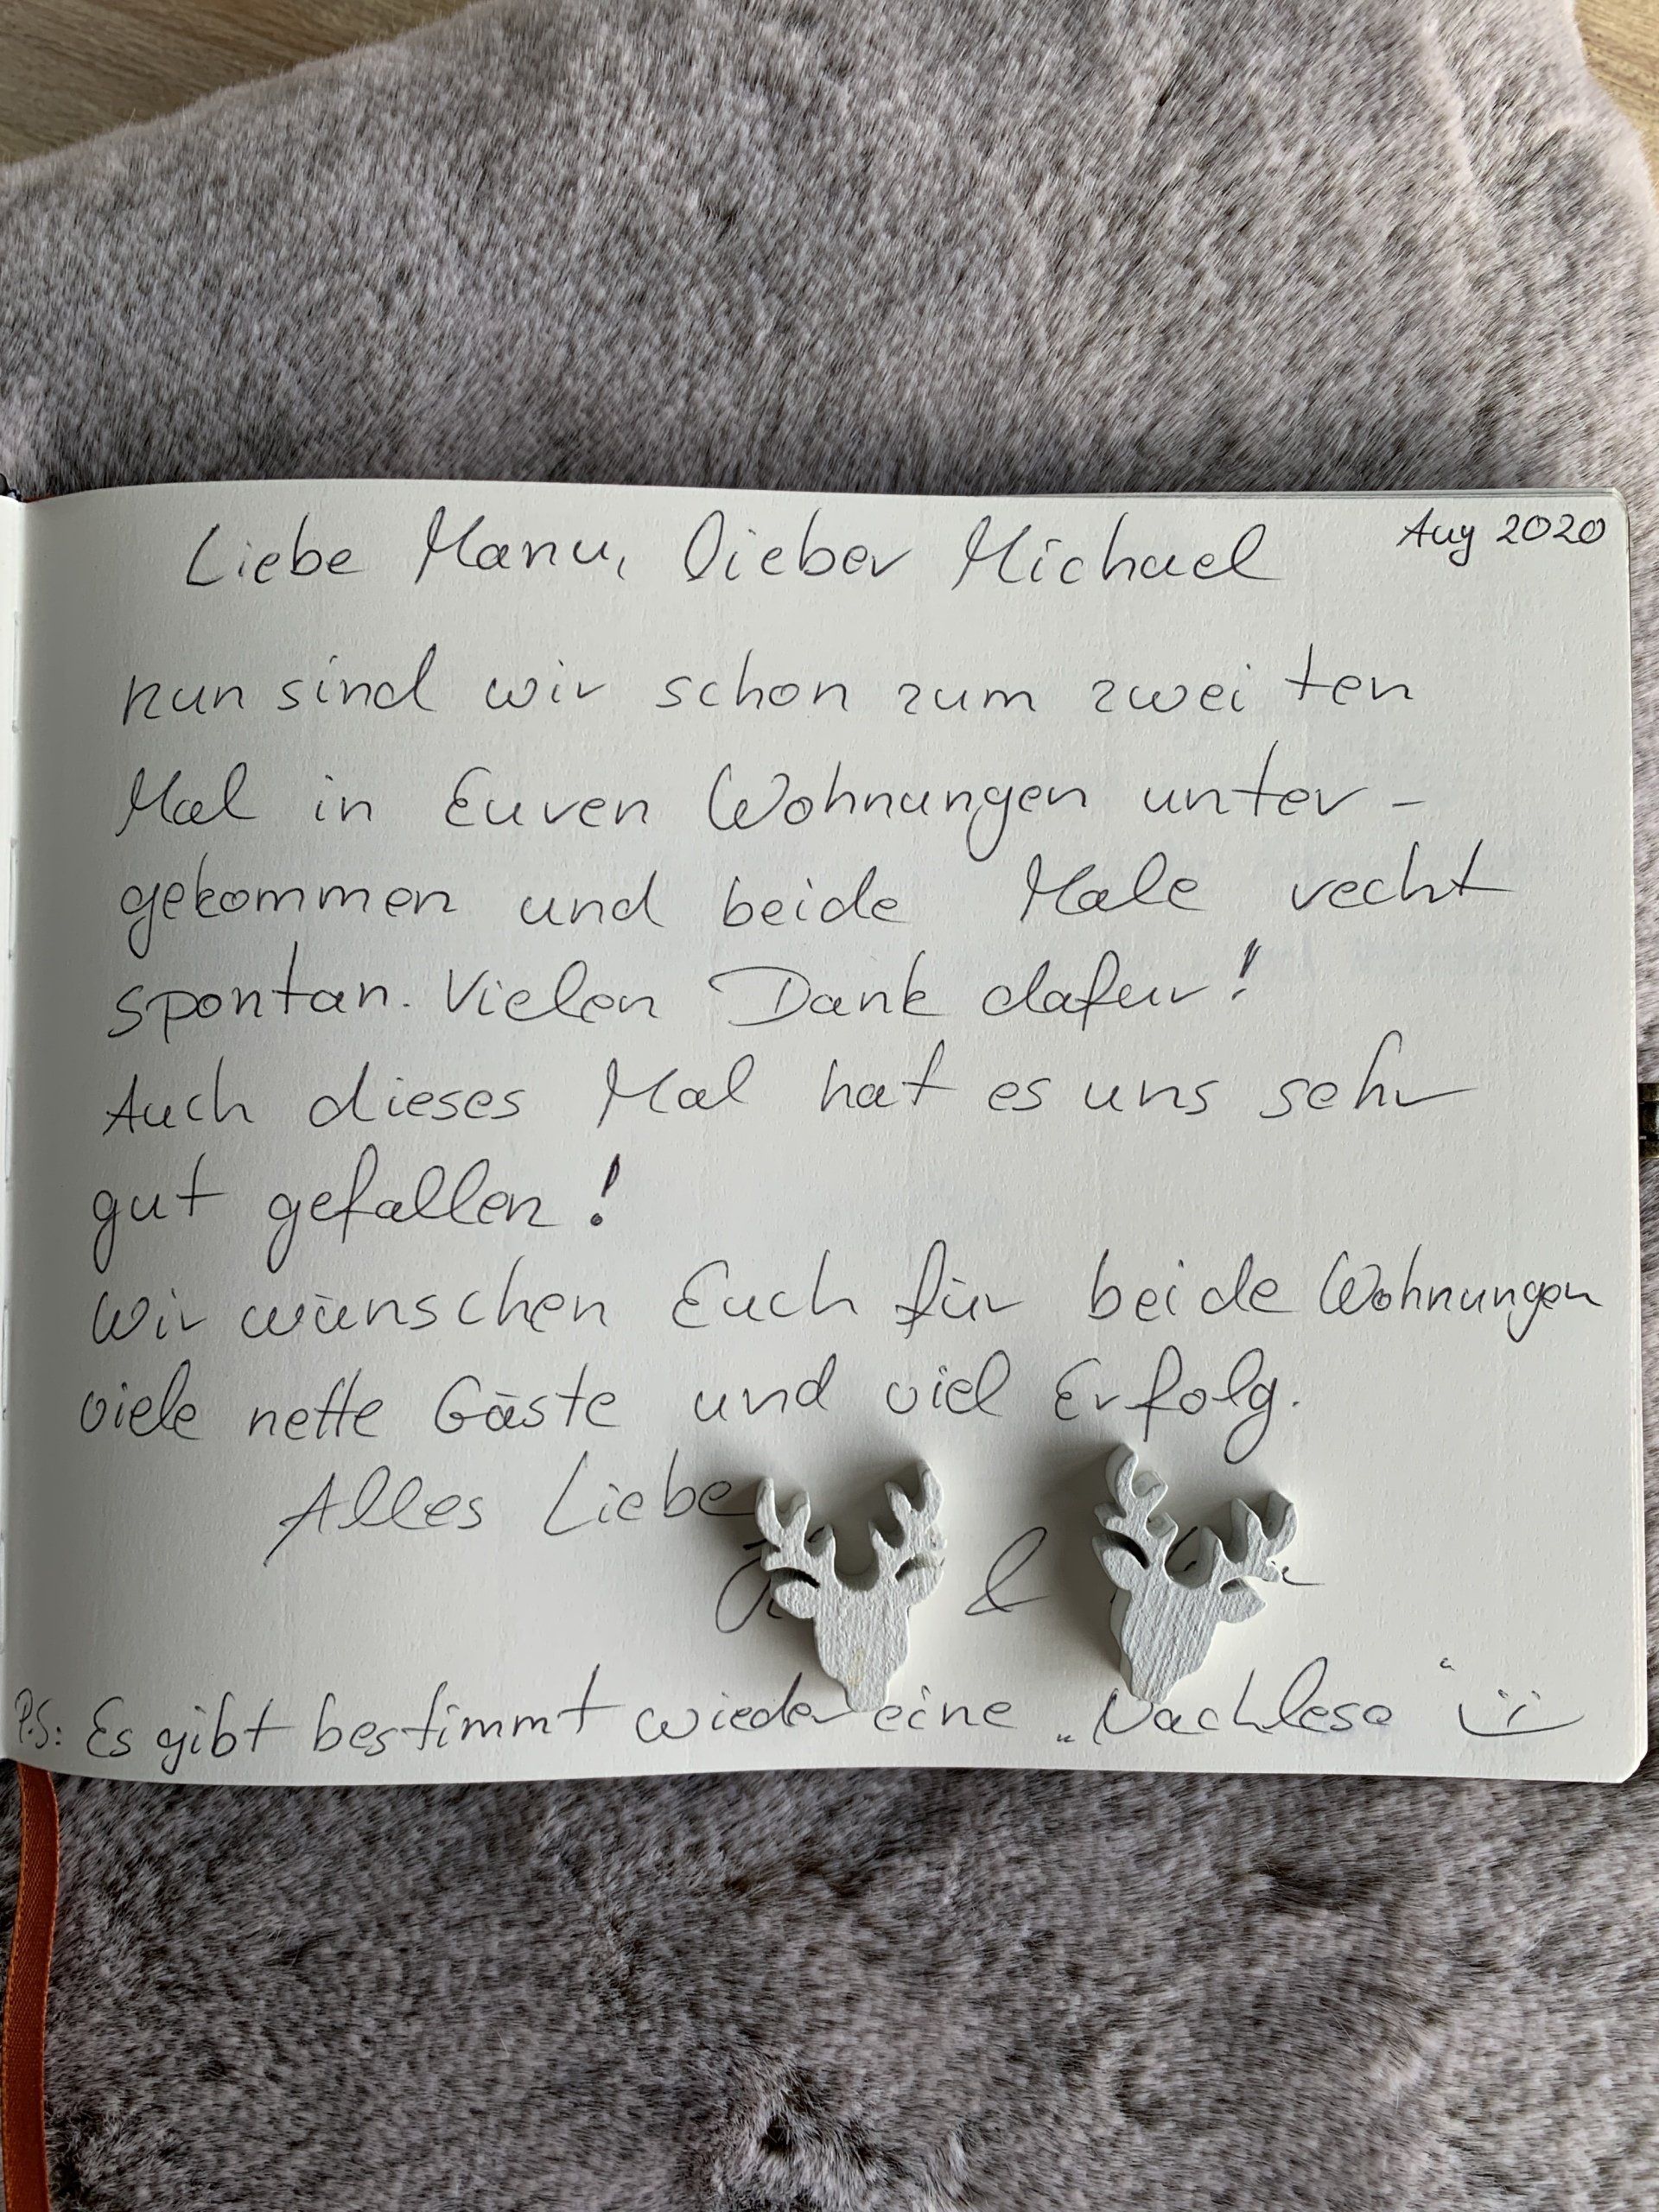 Aug 2020
Liebe Manu, lieber Michael
nun sind wir schon zum zweiten
Mal in Euren Wohnungen unter-
gekommen und beide Male recht
spontan. Vielen Dank dafür!
Auch dieses Mal hat es uns sehr
gut gefallen!
Wir wünschen Euch für beide Wohnungen
viele nette Gäste und viel Erfolg.
Alles Liebe
&
P.S: Es gibt bestimmt wieder eine „Nachlese“